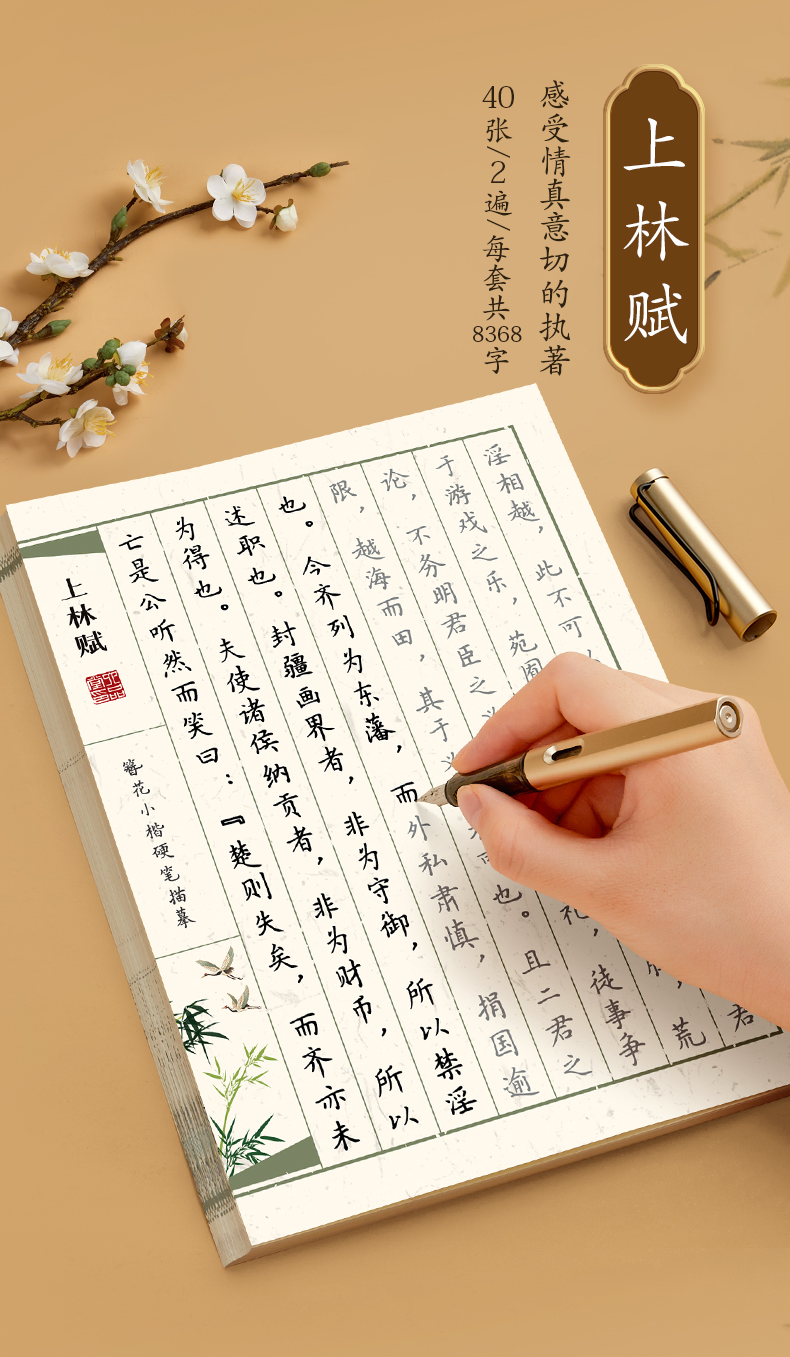 上林赋
感受情真意切的执著
40张/2遍/每套共8368字
上林赋
簪花小楷硬笔描摹
亡是公听然而笑曰：『楚则失矣，而齐亦未
为得也。夫使诸侯纳贡者，非为财币，所以
述职也。封疆画界者，非为守御，所以禁淫
也。今齐列为东藩，而外私肃慎，捐国逾
限，越海而田，其于也。且二君之
论，不务明君臣之礼，徒事争
于游戏之乐，苑囿，荒
淫相越，此不可君